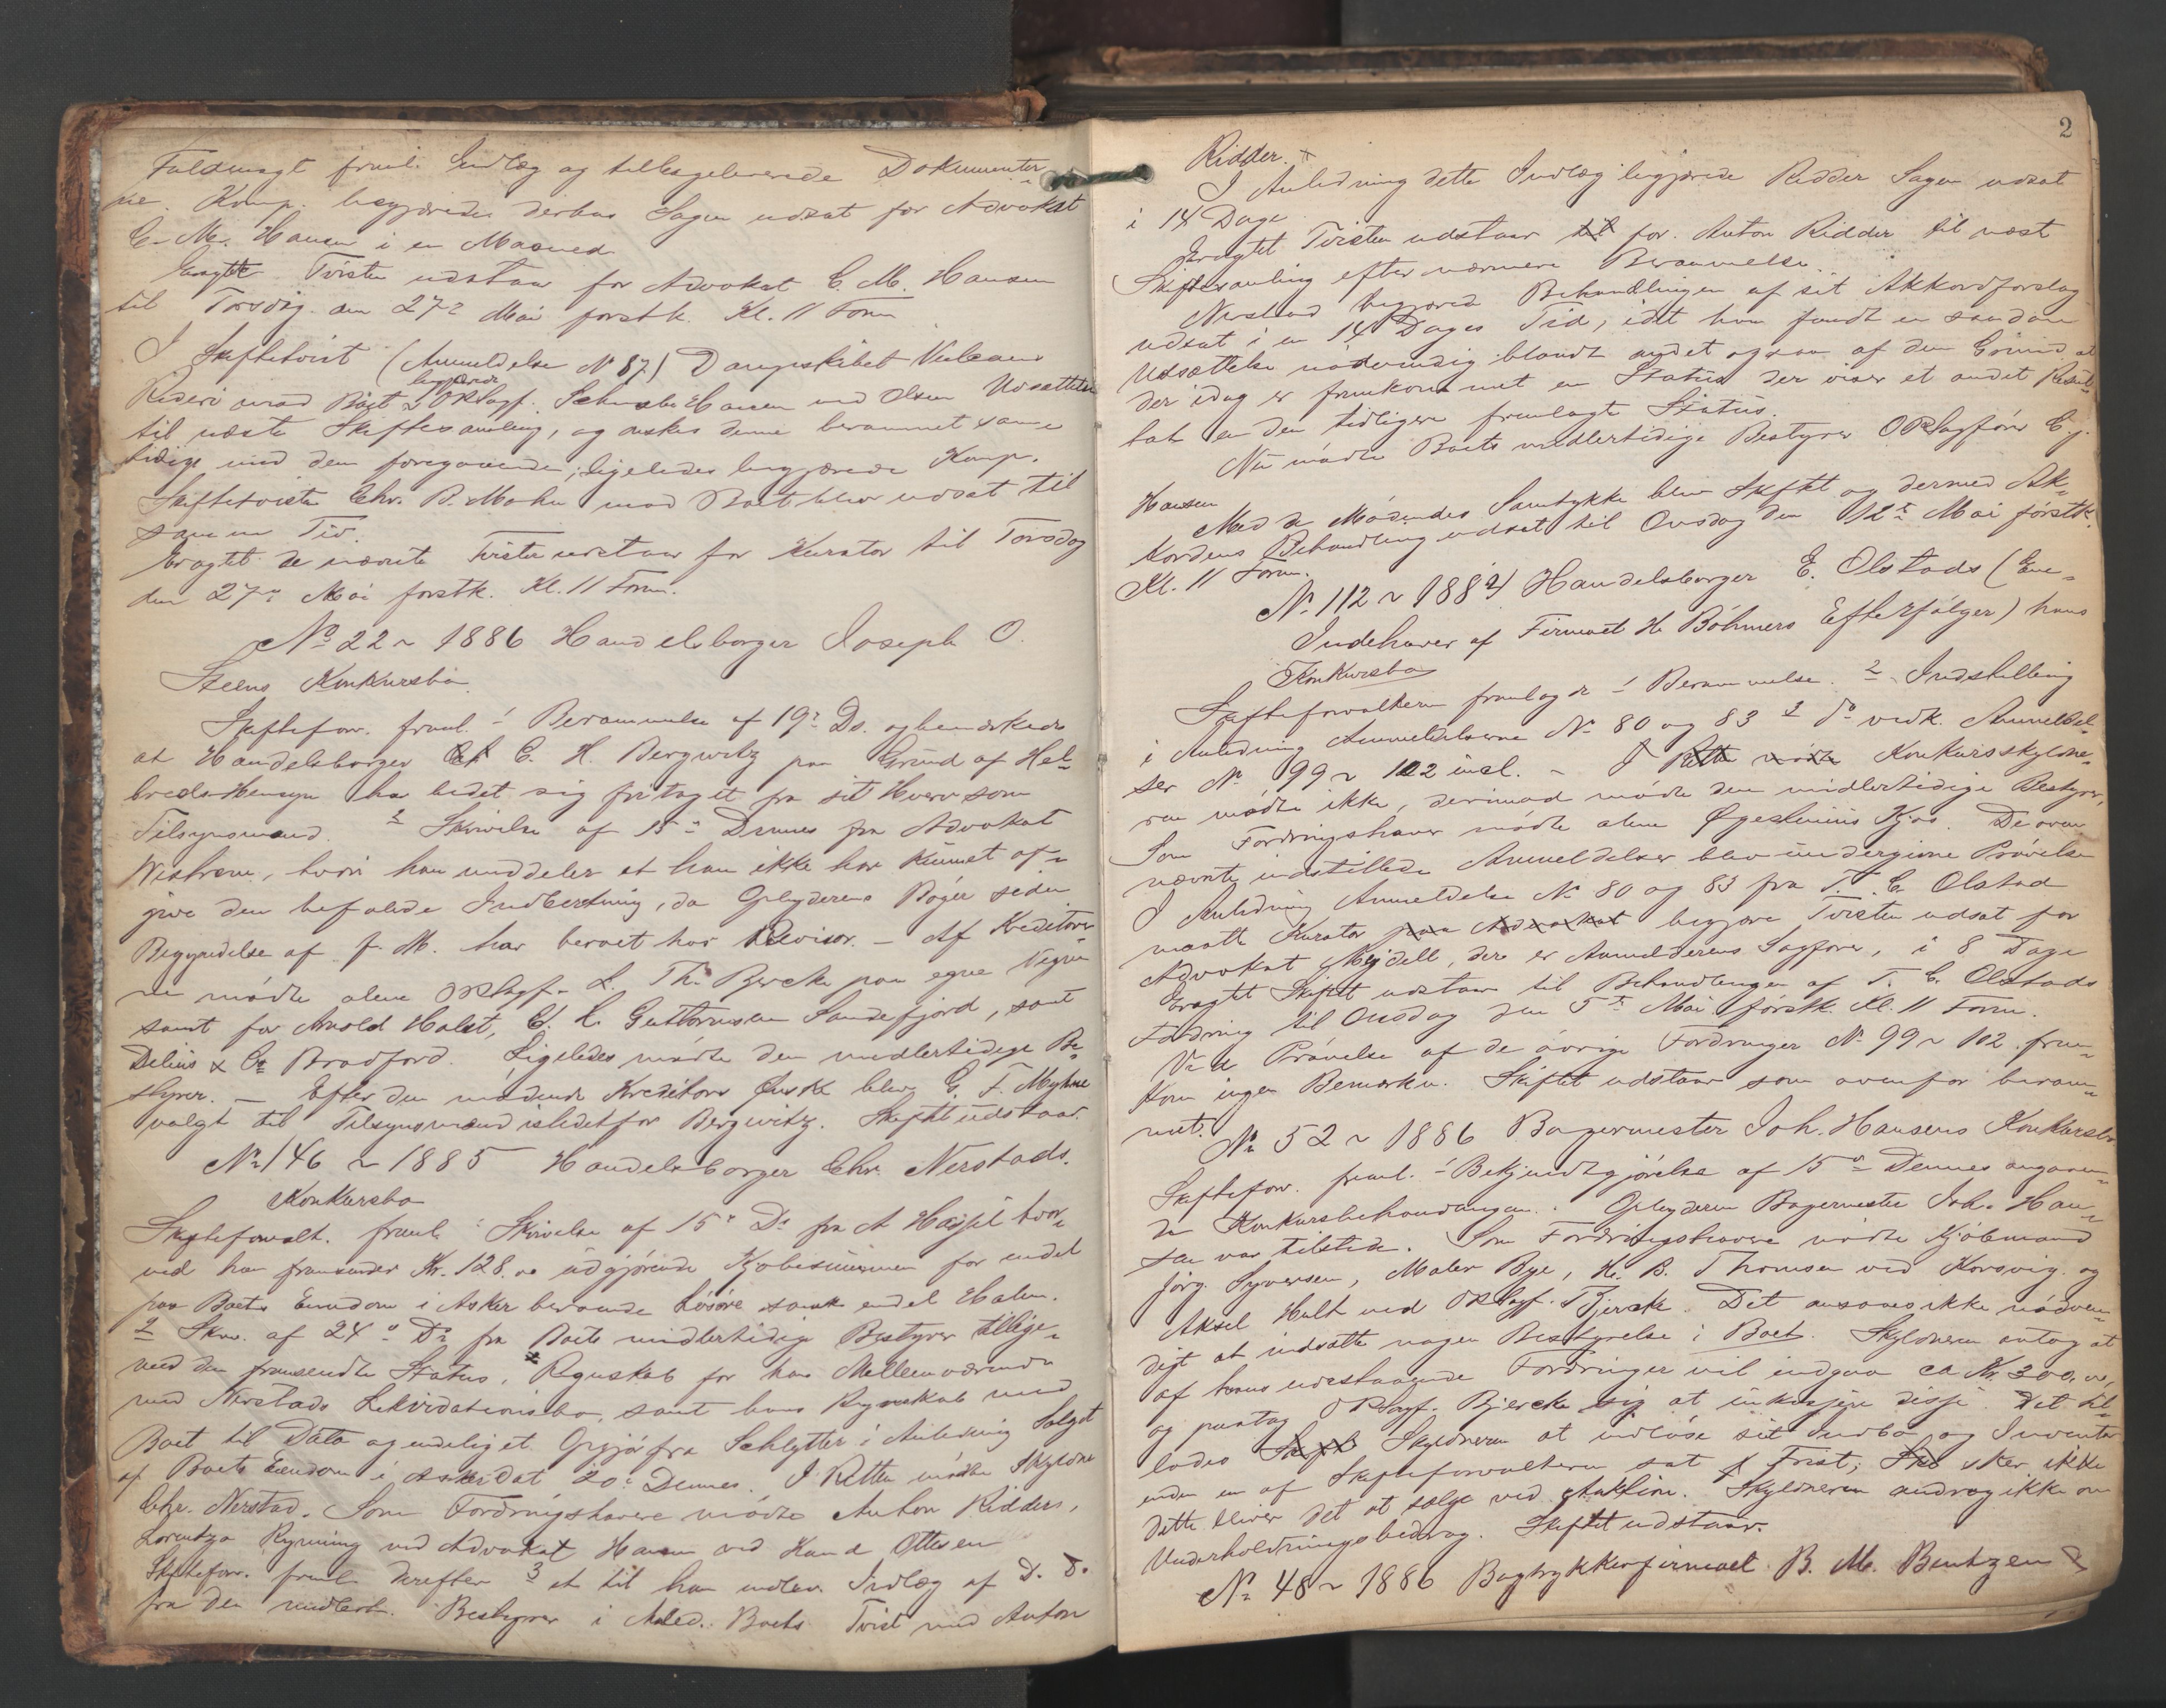 Fuldmagt freml. Indlæg og tilbageleverede Dokumenter-
ne. Komp. begjærede derhos Sagen udsat for Advokat
C. M. Hansen i en Maaned.
Eragtet Tvisten udstaar for Advokat C. M. Hansen
til Torsdag den 27de Mai førstk. Kl. 11 Form
I Skiftetvist (Anmeldelse No 87) Dampskibet Vulcans
Rederi mod Boet begjærede ORSagf. Hansen ved Olsen Udsættelse
til næste Skiftesamling, og ønskes denne berammet sam-
tidig med den foregaaende; ligeledes begjærede Komp.
Skiftetvisten Chr. B. Mohn mod Boet blev udsat til
samme Tid.
Eragtet de nævnte Tvister udstaar for Kurator til Torsdag
den 27de Mai førstk. Kl. 11 Form.
No 22 ~ 1886 Handelsborger Joseph O.
Steens Konkursbo
Skifteforv. freml. 1 Berammelse af 19de Ds. og bemærkede
at Handelsborger C. H. Bergwitz paa Grund af Hel-
breds Hensyn har bedet sig fritaget fra sit Hverv som
Tilsynsmand. 2 Skrivelse af 15de Dennes fra Advokat
, hvori han meddeler at han ikke har kunnet af-
give den befalede Indberetning, da Opbyderens Bøger siden
Begyndelse af f. M. har beroet hos Revisor. - Af Kreditorer-
ne mødte alene ORSagf. L. Th. Bjercke paa egne Vegne
samt for Arnold Holst, C. L. Guttormsen Sandefjord, samt
Delius & Co Bradford. Ligeledes mødte den midlertidige Be-
styrer. - Efter den mødende Kreditors Ønske blev G. F. Myhre
valgt til Tilsynsmand istedetfor Bergwitz. Skiftet udstaar.
No 146 ~ 1885 Handelsborger Chr. Nerstads
Konkursbo
Skifteforvalt. freml. 1 Skrivelse af 15de Ds fra A. hvor-
ved han fremsender Kr. 128.00 udgjørende Kjøbesummen for endel
paa Boets Eiendom i Asker beroende Løsøre samt endel Halm.
2 Skr. af 24de Ds fra Boets midlertidige Bestyrer tillige-
med den fremsendte Status, Regnskab for hans Mellemværende
med Nerstads Likvidationsbo, samt hans Regnskab med
Boet til Dato og endelig et Opgjør fra Schlytter i Anledning Salget
af Boets Eiendom i Asker dat 20de Dennes. I Retten mødte Skyldner
Chr. Nerstad. Som Fordringshavere mødte Anton Ridders,
Lorentza Ryning ved Advokat Hansen ved Kand Ottesen
Skifteforv. freml. derefter 3 et til ham indlev. Indlæg af D. D.
fra den midlert. Bestyrer i Anled. Boets Tvist med Anton
2
Ridder.
I Anledning dette Indlæg begjærede Ridder Sagen udsat
i 14 Dage
Eragtet Tvisten udstaar for Anton Ridder til næst
Skiftesamling efter nærmere Berammelse.
Nerstad begjæred Behandlingen af sit Akkordforslag
udsat i en 14 Dages Tid, idet han fandt en saadan
Udsættelse nødvendig blandt andet ogsaa af den Grund at
der idag er fremkommet en Status der viser et andet Resul-
tat en den tidligere fremlagte Status.
Nu mødte Boets midlertidige Bestyrer ORSagfører E.
Hansen
Med de Mødendes Samtykke blev Skiftet og dermed Ak-
kordens Behandling udsat til Onsdag den 12te Mai førstk.
Kl. 11 Form.
No 112 ~ 1884 Handelsborger E. Olstads (Ene-
Indehaver af Firmaet H. Böhmers Efterfølger) hans
Konkursbo
Skifteforvalteren fremlagde 1 Berammelse. 2 Indstilling
i Anledning Anmeldelserne No 80 og 83 3 do vedk. Anmeldel-
ser No 99 ~ 102 incl. - Konkursskyldne-
ren mødte ikke, derimod mødte den midlertidige Bestyrer,
Som Fordringshaver mødte alene Kjos. De oven
nævnte indstillede Anmeldelser blev undergivne Prøvelse
I Anledning Anmeldelse No 80 og 83 fra T. C. Olstad
maatte Kurator begjære Tvisten udsat for
Advokat Mejdell, der er Anmelderens Sagfører, i 8 Dage
Eragtet Skiftet udstaar til Behandlingen af T. C. Olstads
Fordring til Onsdag den 5te Mai førstk. Kl. 11 Form.
Ved Prøvelse af de øvrige Fordringer No 99 ~ 102 frem-
kom ingen Bemærkn. Skiftet udstaar som ovenfor beram-
met.
No 52 ~ 1886 Bagermester Joh. Hansens Konkursbo
Skifteforv. freml. 1 Bekjendtgjørelse af 15de Dennes angaaen-
de Konkursbehandlingen. Opbyderen Bagermester Joh. Han-
sen var tilstede. Som Fordringshavere mødte Kjøbmand
Jørg. Syversen, Maler Bye, H. B. Thomsen ved Korsvig og
Aksel Holt ved ORSagf. Bjercke. Det ansaaes ikke nødven-
digt at indsætte nogen Bestyrelse i Boet. Skyldneren antog at
af hans udestaaende Fordringer vil indgaa ca Kr. 300.00,
og paatog ORSagf. Bjercke sig at inkassere disse. Det til-
lodes Skyldneren at indløse sit Indbo og Inventar
inden en af Skifteforvalteren sat Frist; sker ikke
dette bliver det at sælge ved Auktion. Skyldneren androg ikke om
Underholdningsbidrag. Skiftet udstaar.
No 48 ~ 1886 Bogtrykkerfirmaet B. M. Bentzen &